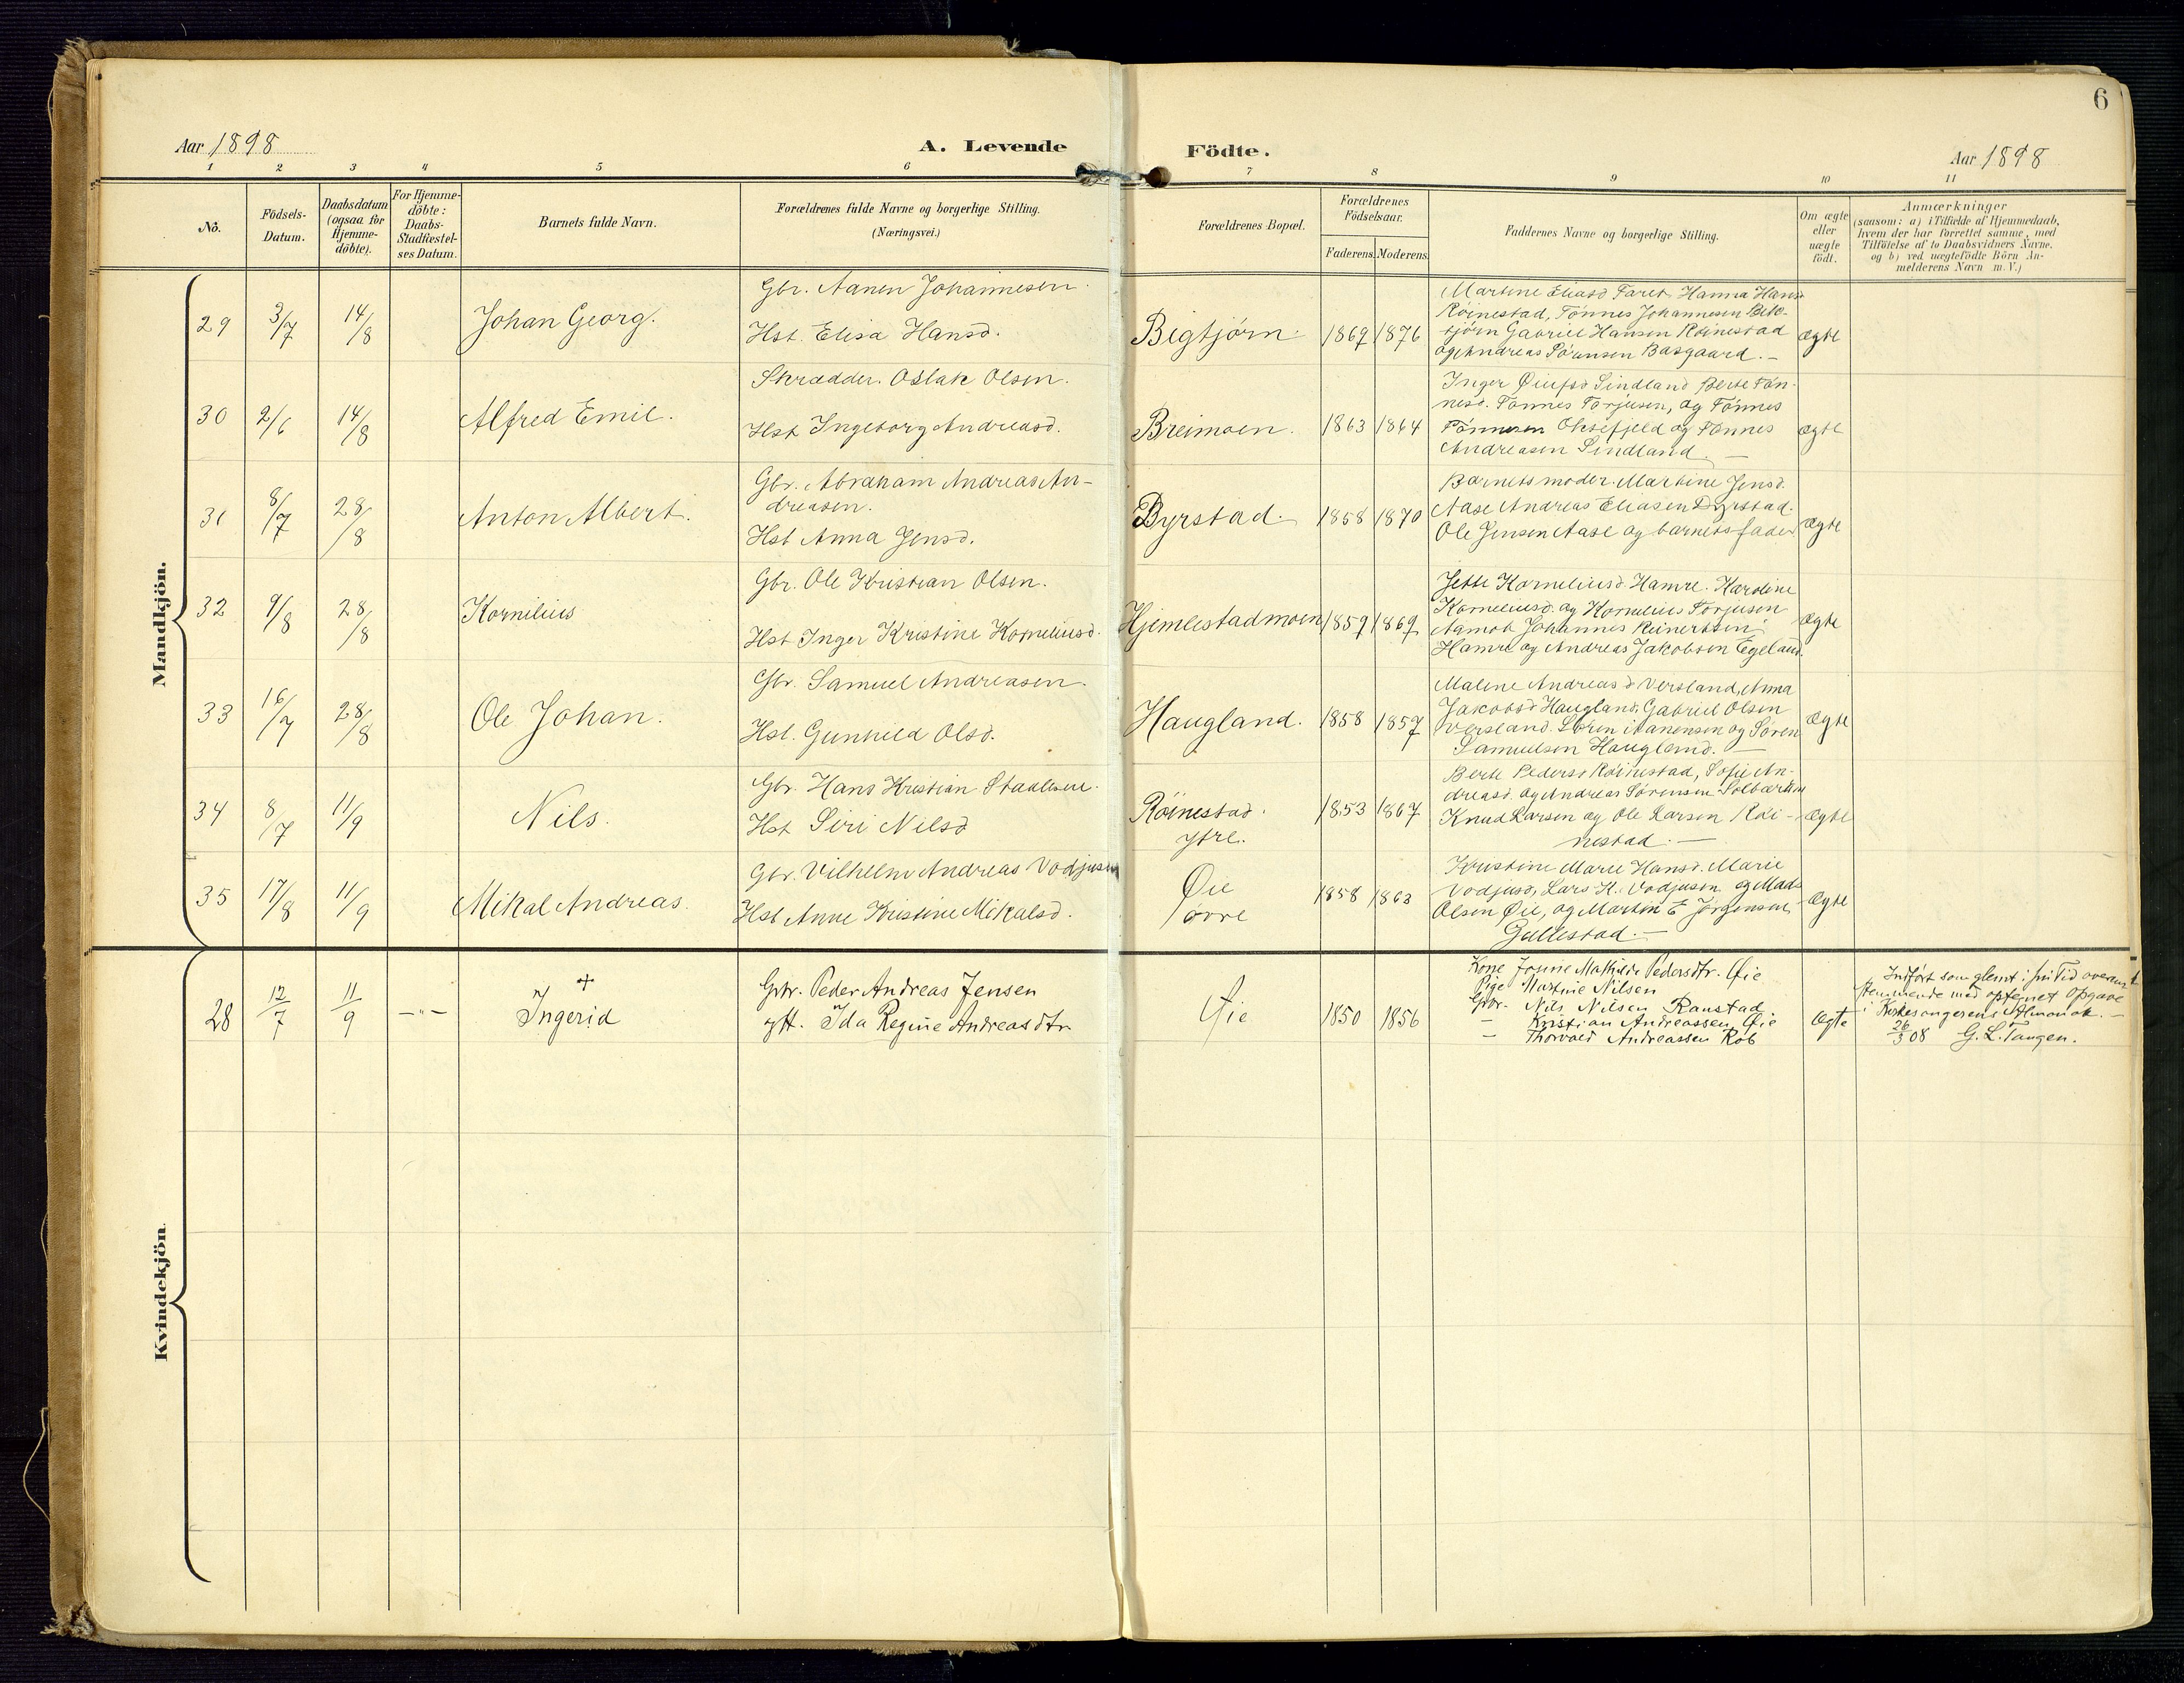 6
Aar 1898
A. Levende Födte.
Aar 1898
1 2 3 4 5 6 7 8 9 10 11
No.
Födsels-Datum.
Daabsdatum (ogsaa for Hjemme-döbte).
For Hjemme-döbte: Daabs-Stadfæstel-ses Datum.
Barnets fulde Navn.
Forældrenes fulde Navne og borgerlige Stilling.
(Næringsvei.)
Forældrenes Bopæl.
Forældrenes Födselsaar.
Faderens. Moderens.
Faddernes Navne og borgerlige Stilling.
Om ægte eller uægte födt.
Anmærkninger
(saasom: a) i Tilfælde af Hjemmedaab,
hvem der har forrettet samme, med
Tilföielse af to Daabsvidners Navne.
og b) ved uægtefödte Börn An-
melderens Navn m. V.)
Mandkjön.
29 3/7 14/8 Johan Georg.
Gbr. Aanen Johannesen.
Hst. Elisa Hansd.
Bigtjørn. 1869 1876
Martine Eliasd Faret, Hanna Hansd
Röinestad, Tønnes Johannesen Bek-
tjörn Gabriel Hansen Röinestad
og Andreas Sörensen Basgaard. —
Ægte
30 2/6 14/8 Alfred Emil.
Skrædder. Oslak Olsen.
Hst Ingeborg Andreasd.
Breimoen. 1863 1864
Sindland Berte Tön-
nesd. Tønnes Torjusen, og Tønnes
Tönnesen Oksefjeld og Tönnes
Andreasen Sindland. —
Ægte
31 8/7 28/8 Anton Albert.
Gbr. Abraham Andreas An-
dreasen.
Hst Anna Jensd.
Byrstad. 1858 1870
Barnets moder. Martine Jensd.
Aase Andreas Eliasen Dyrstad.
Ole Jensen Aase og barnets fader
Ægte
32 9/8 28/8 Kornilius
Gbr. Ole Kristian Olsen.
Hst Inger Kristine Korneliusd.
Hjemlestadmoen 1859 1869
Jette Korneliusd. Hamre. Karoline
Korneliusd. og Kornelius Torjusen
Aamot Johannes Reinertsen
Hamre og Andreas Jakobsen Egeland.
Ægte
33 16/7 28/8 Ole Johan.
Gbr. Samuel Andreasen.
Hst. Gunhild Olsd.
Haugland. 1858 1857
Malene Andreasd Versland, Anna
Jakobsd Haugland, Gabriel Olsen
Versland. Sören Aanensen og Sören
Samuelsen Haugland. —
Ægte
34 8/7 11/9 Nils.
Gbr. Hans Kristian Staalesen.
Hst Siri Nilsd
Röinestad.
ytre.
1853 1867
Berte Pedersd Röinestad, Sofie An-
dreasd. og Andreas Sörensen
Knud Larsen og Ole Larsen Röi-
nestad. —
Ægte
35 17/8 11/9 Mikal Andreas.
Gbr. Vilhelm Andreas Vodjusen
Hst Anne Kristine Mikalsd.
Øie
övre
1858 1863
Kristine Marie Hansd. Marie
Vodjusd, Lars H. Vodjusen og Mads
Olsen Øie, og Martin E Jörgensen
Gullestad. —
Ægte
Kvindekjön
28 12/7 11/9 —"— +
Ingerid
Gbr. Peder Andreas Jensen
og H. Ida Regine Andreasdtr
Øie 1850 1856
Kone Mathilde Pedersdtr. Øie
Pige Martine Nilsen
Gbr. Nils Nilsen Ranstad.
— Kristian Andreassen Øie
— Thorvald Andreassen Rob
Ægte
Indført som glemt i sin Tid overens-
stemmende med optegnet Opgave
i Kirkesangerens Almanak. —
26/3 08 G. L. Tangen.